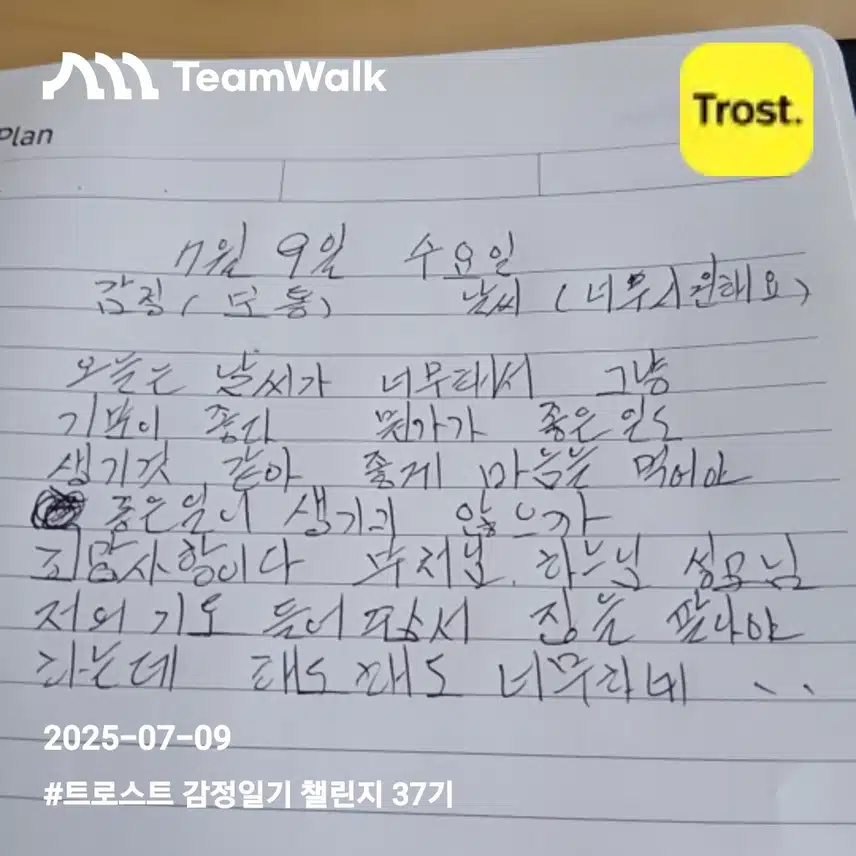 TeamWalk
Trost.
Plan
7월 9일 수요일
감정 (보통) 날씨 (너무시원해요)
오늘은 날씨가 그냥
기분이 좋다 뭔가가 좋은일도
생기것 같아 좋게 마음을 먹어야
좋은일이 생기지 않으까
희망사항이다 부처님. 하느님 성모님
저의 기도 들어 집을 팔나야
하는데 해도 너무하네
2025-07-09
#트로스트 감정일기 챌린지 37기